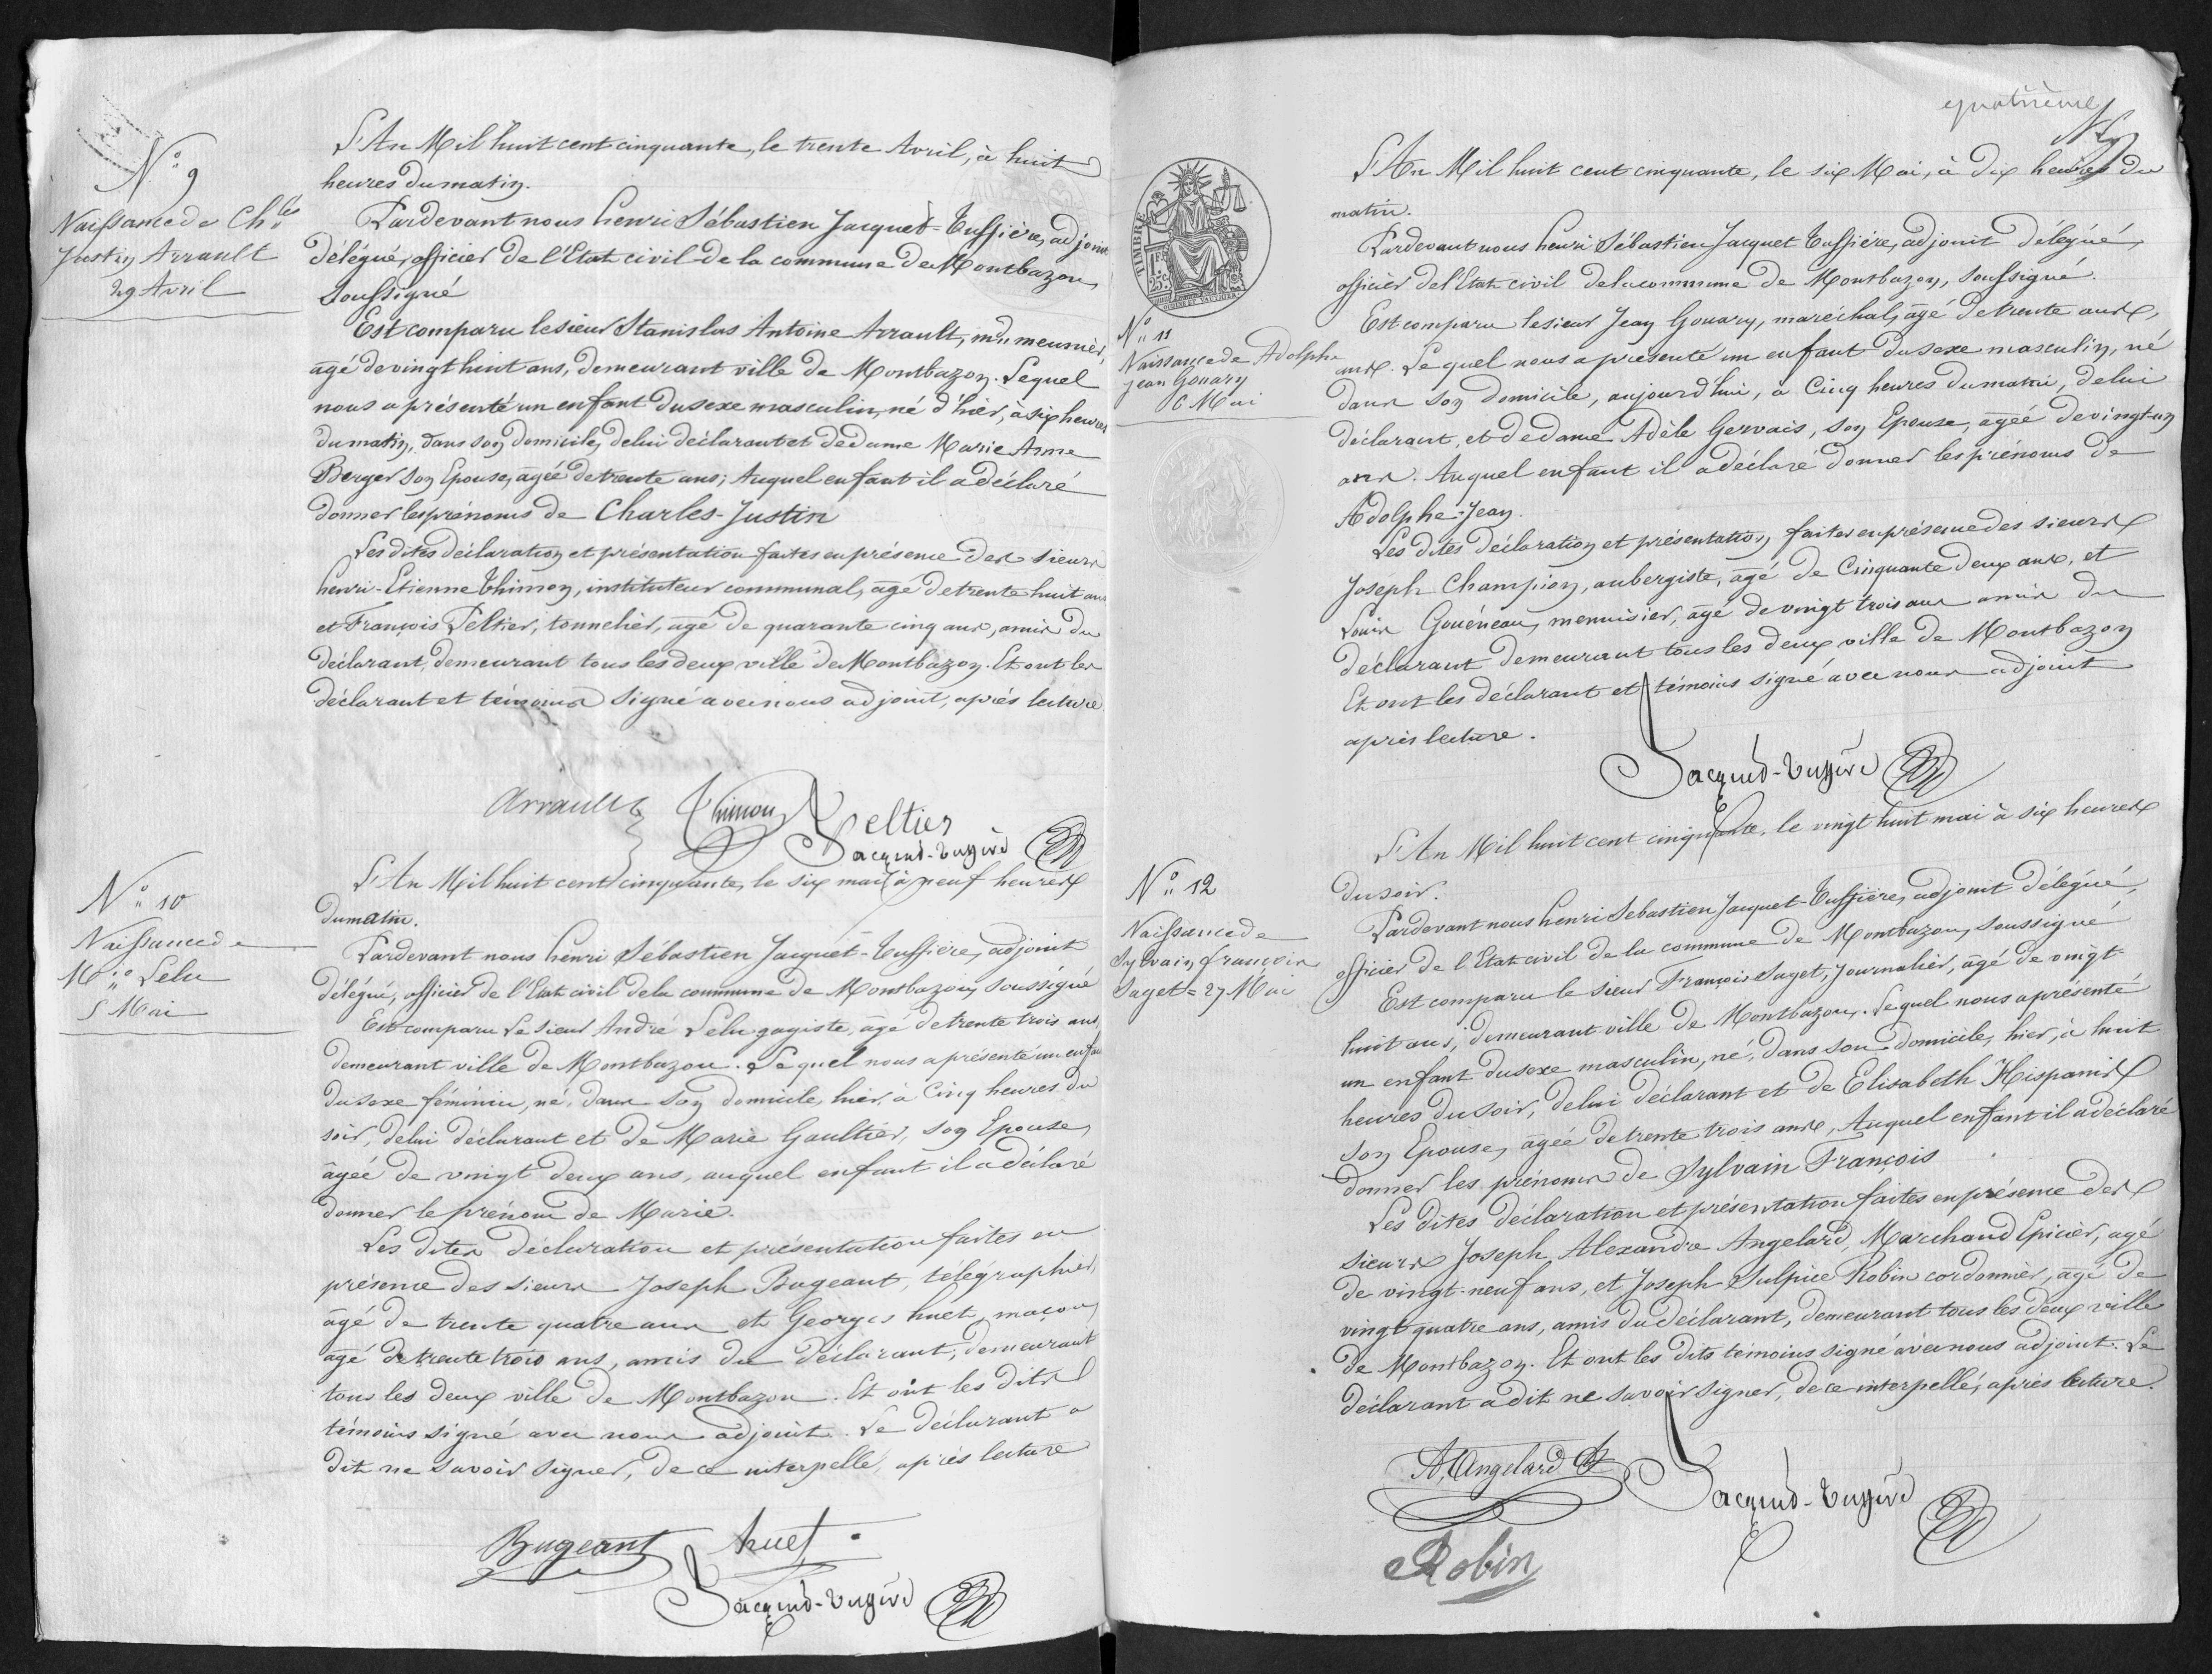 N° 9
Naissance de Ch.les
Justin Arrault
29 Avril
L'An Mil huit cent cinquante, le trente Avril, à huit
heures du matin.
Pardevant nous henri Sébastien Jacquet-Tuffière, adjoint
délégué, officier de l'Etat civil de la commune de Montbazon,
Soussigné
Est comparu le sieur Stanislas Antoine Arrault, md meunier,
agé de vingt huit ans, demeurant ville de Montbazon. Lequel
nous a présenté un enfant du sexe masculin, né d'hier, à six heures
du matin, dans son domicile, de lui déclarant et de dame Marie Anne
Berger son Epouse, agée de trente ans; Auquel enfant il a déclaré
donner les prénoms de Charles-Justin
Les dites déclaration et présentation faites en présence des sieurs
henri-Etienne Thimon, instituteur communal, agé de trente huit ans
et François Peltier, tonnelier, agé de quarante cinq ans, amis du
déclarant, demeurant tous les deux ville de Montbazon. Et ont les
déclarant et témoins signé avec nous adjoint, après lecture.
Arrault Thimon Peltier
Jacquet-Tuffière
N° 10
Naissance de
M.ie Lelu
5 Mai
L'An Mil huit cent cinquante, le six mai à neuf heures
du matin.
Pardevant nous henri Sébastien Jacquet-Tuffière, adjoint
délégué, officier de l'Etat civil de la commune de Montbazon, soussigné
Est comparu Le sieur André Lelu gagiste, âgé de trente trois ans,
demeurant ville de Montbazon. Lequel nous a présenté un enfant
du sexe féminin, né, dans son domicile, hier, à Cinq heures du
soir, de lui déclarant et de Marie Gaultier, son Epouse,
âgée de vingt deux ans, auquel enfant il a déclaré
donner le prénom de Marie.
Les dites déclaration et présentation faites en
présence des sieurs Joseph Bugeant, télégraphier,
âgé de trente quatre ans et Georges huet, maçon,
agé de trente trois ans, amis du déclarant, demeurant
tous les deux ville de Montbazon. Et ont les dits
témoins signé avec nous adjoint. Le déclarant a
dit ne savoir signer, de ce interpellé, après lecture
Bugeant huet
Jacquet-Tuffière
quatrième
TIMBRE
1 FR
25 C.
N° 11
Naissance de Adolphe
jean Gouary
6 Mai
L'An Mil huit cent cinquante, le six Mai, à dix heures du
matin.
Pardevant nous henri Sébastien Jacquet Tuffière, adjoint délégué,
officier de l'Etat civil de la commune de Montbazon, soussigné.
Est comparu le sieur Jean Gouary, maréchal, agé de trente ans,
ans. Lequel nous a présenté un enfant du sexe masculin, né
dans son domicile, aujourd'hui, à Cinq heures du matin, de lui
déclarant, et de dame Adèle Gervais, son Epouse, agée de vingt-un
ans. Auquel enfant il a déclaré donner les prénoms de
Adolphe-Jean.
Les dites déclaration et présentation, faites en présence des sieurs
Joseph Champion, aubergiste, âgé de Cinquante deux ans, et
Louis Gouéneau, menuisier, âgé de vingt trois ans amis du
déclarant demeurant tous les deux ville de Montbazon
Et ont les déclarant et témoins signé avec nous adjoint
après lecture.
Jacquet-Tuffière
N° 12
Naissance de
Sylvain françois
Saget = 27 Mai
L'An Mil huit cent cinquante, le vingt huit mai à six heures
du soir.
Pardevant nous henri Sebastien Jacquet-Tuffière, adjoint délégué,
officier de l'Etat civil de la commune de Montbazon, soussigné
Est comparu le sieur François Saget, Journalier, âgé de vingt-
huit ans, demeurant ville de Montbazon. Lequel nous a présenté
un enfant du sexe masculin, né, dans son domicile, hier, à huit
heures du soir, de lui déclarant et de Elisabeth Hispanis
son Epouse, agée de trente trois ans, Auquel enfant il a déclaré
donner les prénoms de Sylvain François
Les dites déclaration et présentation faites en présence des
sieurs Joseph Alexandre Angelard, Marchand Epicier, agé
de vingt-neuf ans, et Joseph Sulpice Robin cordonnier, âgé de
vingt quatre ans, amis du déclarant, demeurant tous les deux ville
de Montbazon. Et ont les dits témoins signé avec nous adjoint. Le
déclarant a dit ne savoir signer, de ce interpellé, après lecture.
A. Angelard
Jacquet-Tuffière
Robin